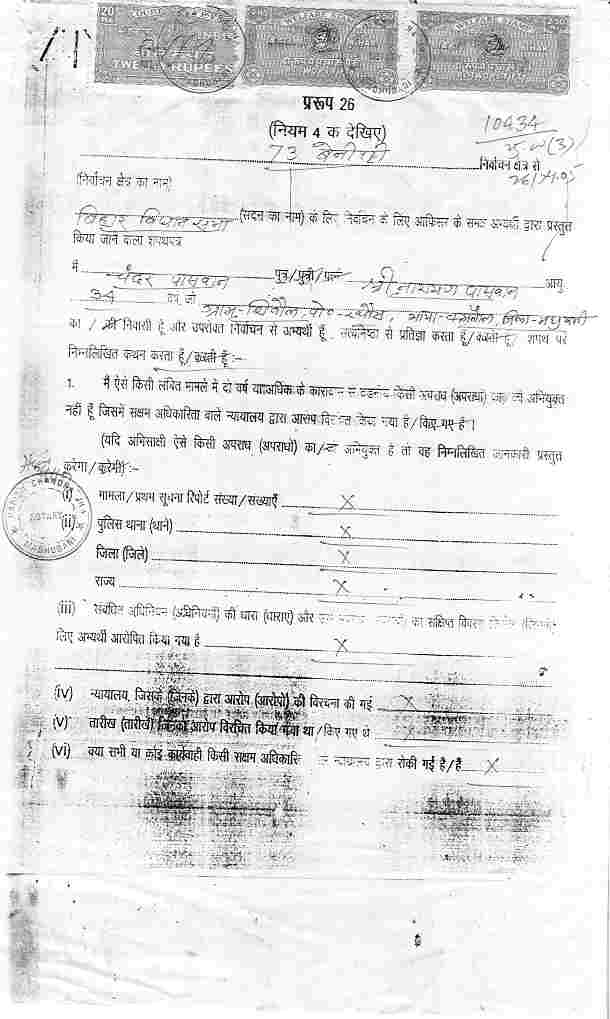 WELFARE STAMP
WELFARE STAMP
TWENTY RUPEES
प्ररूप 26
(नियम 4 क देखिए)
10434
73 बेनीपट्टी निर्वाचन क्षेत्र से
(निर्वाचन क्षेत्र का नाम)
बिहार विधान सभा (सदन का नाम) के लिए निर्वाचन के लिए आफिसर के समक्ष अभ्यर्थी द्वारा प्रस्तुत
किया जाने वाला शपथपत्र
मैं चंदर पासवान पुत्र/पुत्री/पत्नी श्री नारायण पासवान आयु
34 वर्ष, जो ग्राम-
का / की निवासी हूँ और उपरोक्त निर्वाचन से अभ्यर्थी हूँ, सत्यनिष्ठा से प्रतिज्ञा करता हूँ/करती हूँ/ शपथ पर
निम्नलिखित कथन करता हूँ/करती हूँ :-
1. मैं ऐसे किसी लंबित मामले में दो वर्ष या अधिक के कारावास से दंडनीय किसी अपराध (अपराधों) का/की अभियुक्त
नहीं हूँ जिसमें सक्षम अधिकारिता वाले न्यायालय द्वारा आरोप विरचित किया गया है / किए गए हैं।
(यदि अभिसाक्षी ऐसे किसी अपराध (अपराधों) का/की अभियुक्त है तो वह निम्नलिखित जानकारी प्रस्तुत
करेगा / करेगी) :-
(i) मामला/प्रथम सूचना रिपोर्ट संख्या/संख्याएँ X
(ii) पुलिस थाना (थाने) X
जिला (जिले) X
राज्य X
(iii) संबंधित अधिनियम (अधिनियमों) की धारा (धाराएं) और का संक्षिप्त विवरण
लिए अभ्यर्थी आरोपित किया गया है X
(iv) न्यायालय, जिसके (जिनके) द्वारा आरोप (आरोपों) की विरचना की गई X
(v) तारीख (तारीखें) जिनको आरोप विरचित किया गया था/किए गए थे X
(vi) क्या सभी या कोई कार्यवाही किसी सक्षम अधिकारिता न्यायालय द्वारा रोकी गई है/हैं X